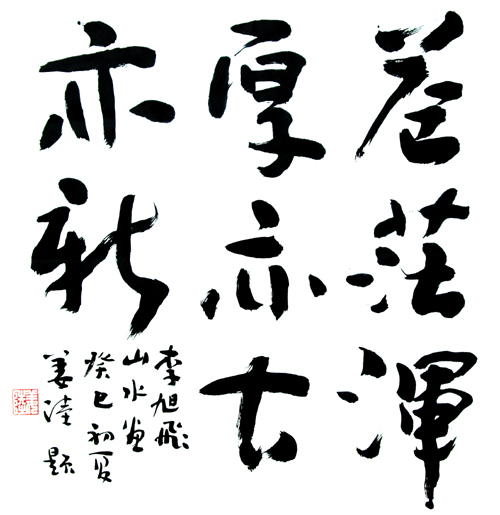 蒼茫渾
厚亦古
亦新
李旭飛
山水画
癸巳初夏
姜陸題